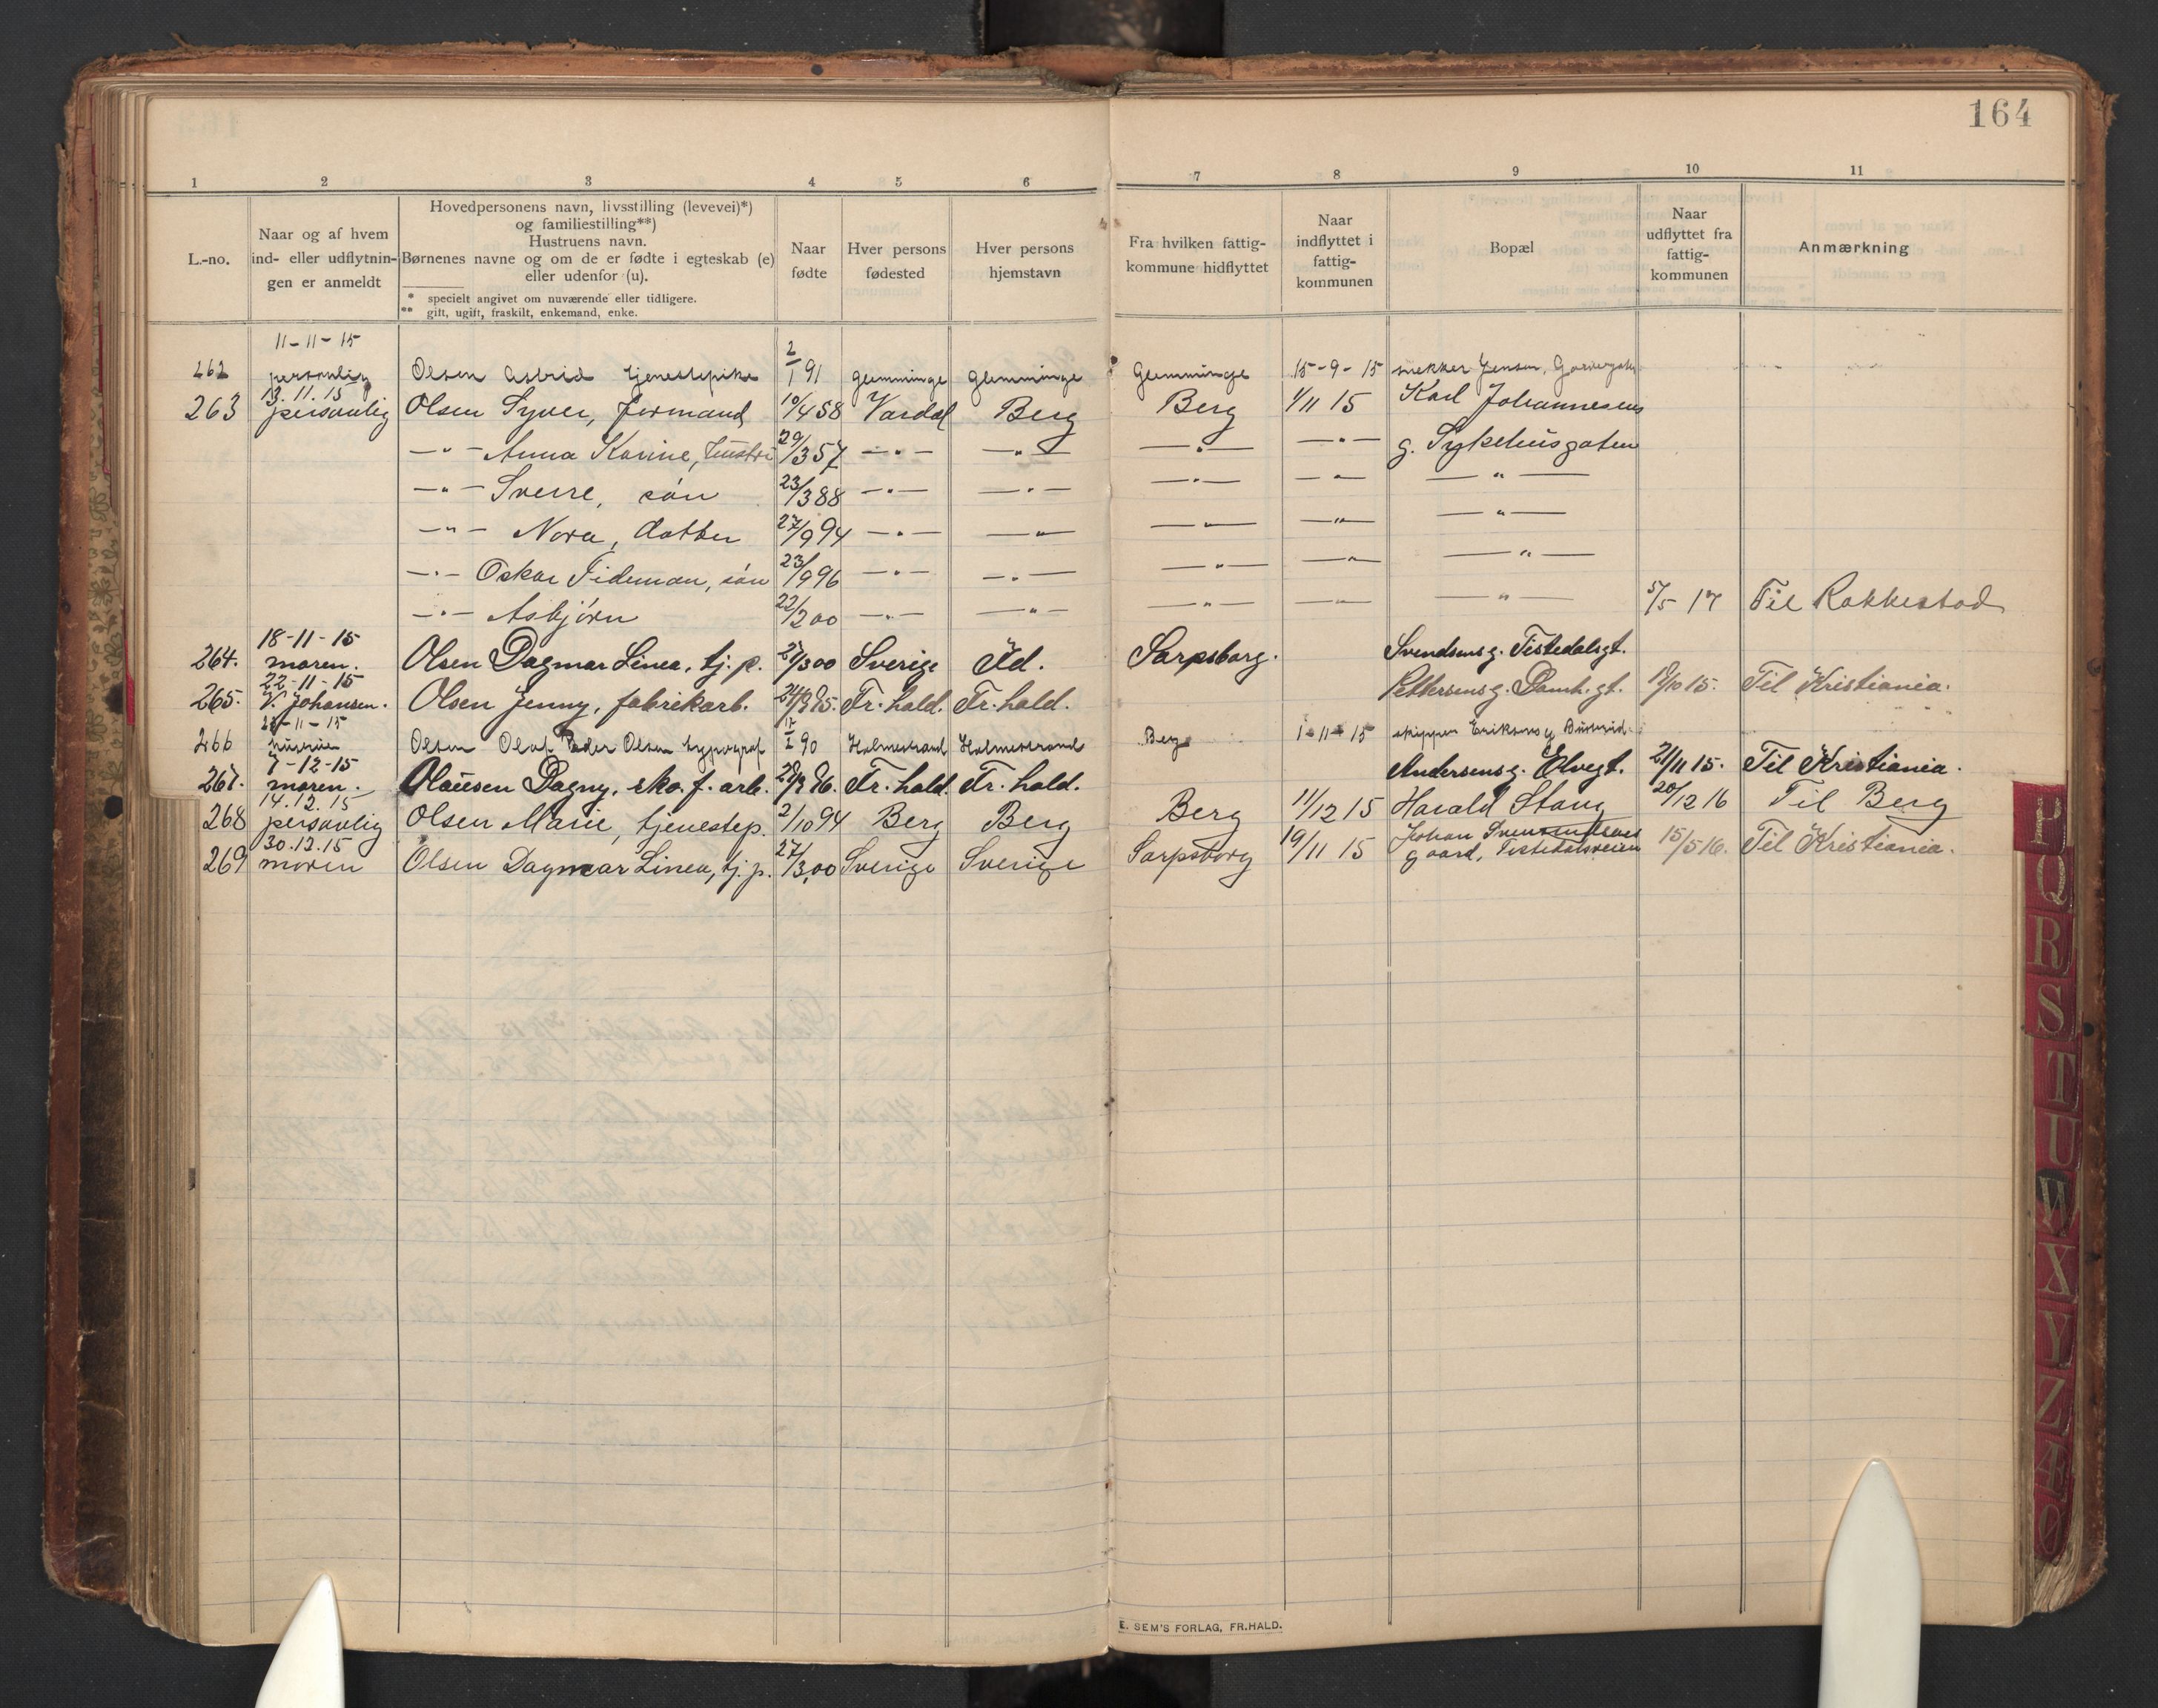 164
1 2 3 4 5 6 7 8 9 10 11
L.-no.
Naar og af hvem
ind- eller udflytnin-
gen er anmeldt
Hovedpersonens navn, livsstilling (levevei)*)
og familiestilling**)
Hustruens navn.
Børnenes navne og om de er fødte i egteskab (e)
eller udenfor (u).
* specielt angivet om nuværende eller tidligere.
** gift, ugift, fraskilt, enkemand, enke.
Naar
fødte
Hver persons
fødested
Hver persons
hjemstavn
Fra hvilken fattig-
kommune hidflyttet
Naar
indflyttet i
fattig-
kommunen
Bopæl
Naar
udflyttet fra
fattig-
kommunen
Anmærkning
11-11-15
262 personlig Olsen Astrid tjenestepike 2/1 91 Glemminge Glemminge Glemminge 15-9-15 snekker Jensen,
13.11.15
263 personlig Olsen Syver, formand 10/4 58 Vardal Berg Berg 1/11 15 Karl Johannesens
—"— Anna Karine, hustru 29/3 57 —"— —"— —"— —"— g. Sykehusgaten
—"— Sverre, søn 23/3 88 —"— —"— —"— —"— —"—
—"— Nora, datter 27/9 94 —"— —"— —"— —"— —"—
—"— Oskar Fideman, søn 23/9 96 —"— —"— —"— —"— —"—
—"— Asbjørn 22/2 00 —"— —"— —"— —"— —"— 5/5 17 Til Rakkestad
18-11-15
264. moren. Olsen Dagmar Linea, tj. p. 27/3 00 Sverige Id. Sarpsborg. Svendsensg. Tistedalsgt.
22-11-15
265. V. Johansen. Olsen Jenny, fabrikarb. 24/9 95. Fr.hald. Fr.hald. Pettersensg. Damh.gt. 19/10 15. Til Kristiania.
-11-15
266 huseier Olsen Olaf Peder Olsen typograf 90 Holmestrand Holmestrand Berg 1-11-15 skipper Eriksens g
7-12-15
267. moren. Olausen Dagny, sko. f. arb. 28/9 96. Fr.hald. Fr.hald. Andersensg. Elvegt. 21/11 15. Til Kristiania.
14.12.15
268 personlig Olsen Marie, tjenestep. 2/10 94 Berg Berg Berg 11/12 15 Harald Stang 20/12 16 Til Berg
30.12.15
269 moren Olsen Dagmar Linea, tj. p. 27/3 00 Sverige Sverige Sarpsborg 19/11 15 Johan Svensendsens 15/5 16. Til Kristiania.
gaard, Tistedalsveien
E. SEM'S FORLAG, FR.HALD.
P
Q
R
S
T
U
W
X
Y
Z
Æ
Ø